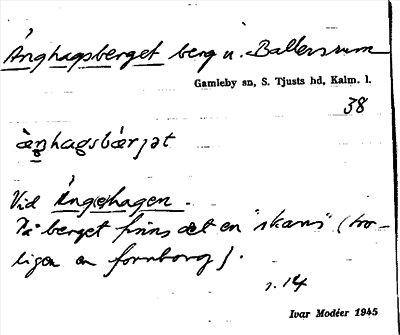 Änghagsberget berg u. Ballersum
Gamleby sn, S. Tjusts hd, Kalm. l.
38
Vid Äng(e)hagen.
På berget finns det en "skans" (tro-
ligen en fornborg).
s. 14
Ivar Modéer 1945